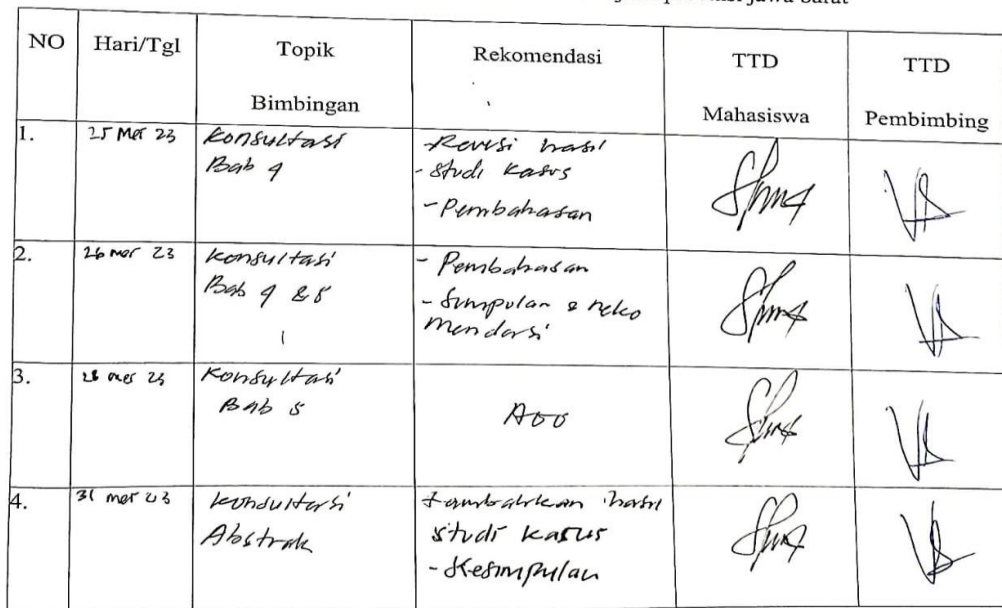 Jawa Barat
NO Hari/Tgl Topik Bimbingan Rekomendasi TTD Mahasiswa TTD Pembimbing
1. 25 Mei 23 Konsultasi Bab 4 - Revisi hasil
- Studi Kasus
- Pembahasan
2. 26 Mei 23 Konsultasi Bab 4 & 5 - Pembahasan
- Simpulan & reko
mendasi
3. 28 Mei 23 Konsultasi Bab 5 Acc
4. 31 Mei 23 Konsultasi Abstrak tambahkan hasil
studi kasus
- Kesimpulan